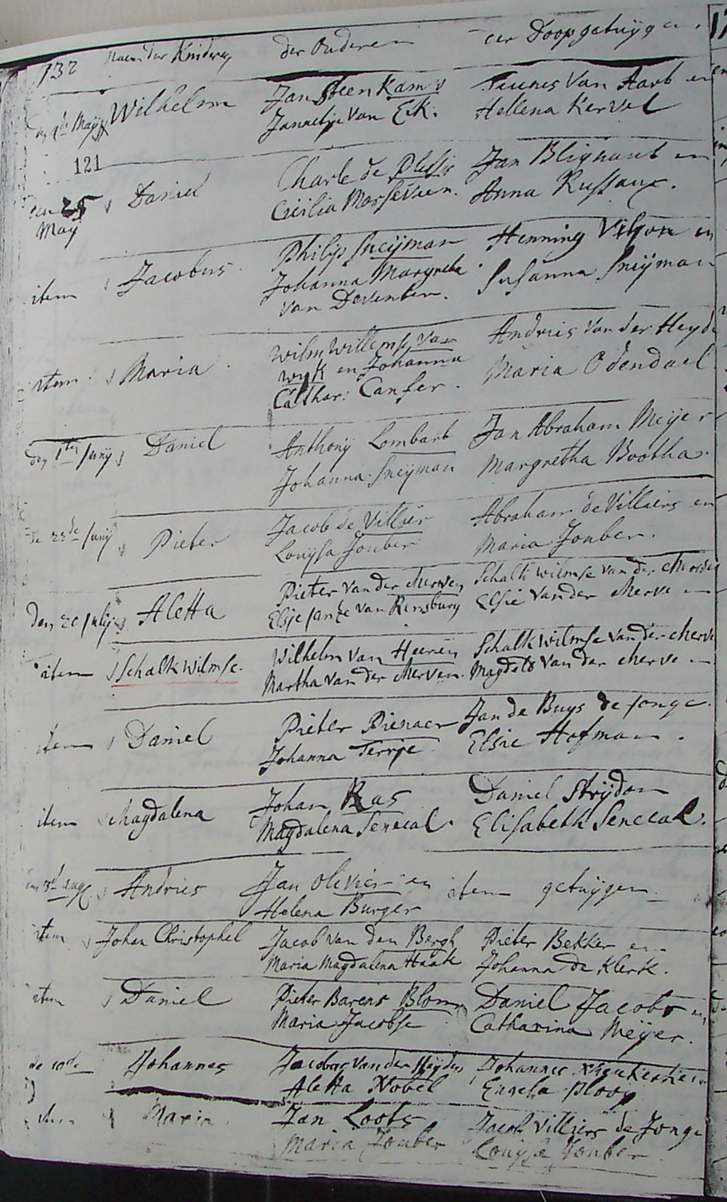 132 naem der Kinderen der Ouderen der Doopgetuijgen
Maij Wilhelm Jan Steenkamp Teunes Van Aart en
Jannetje Van Eck. Hellena Kervel
121
den 25 Daniel Charle de Plessis Jan Blignaut en
Maij Cicilia Mosseveen. Anna Russaux.
item Jacobus Philip Sneijman Henning Viljon en
Johanna Margreta Susanna Sneijman
van Deventer.
item Maria Wilm Willemse van Andries Van der Heyde
Wijk en Johanna Maria Odendael
Cathar: Canser.
den 1ten Junij Daniel Anthonij Lombart Jan Abraham Meijer
Johanna Sneijman Margretha Bootha
de 22de Junij Pieter Jacob de Villier Abraham de Villiers en
Louijsa Jouber Maria Jouber.
den 20 Julij Aletta Pieter van der Merven Schalk Wilmse van der Merve
Elsje van Rensburg Elsie van der Merve
item Schalk Wilmse. Wilhelm van Heeren Schalk Wilmse van der Merve
Martha van der Merven. Magdelo van der Merve
item Daniel Pieter Pienaer Jan de Buys de Jonge
Johanna Terrye Elsie Hofman.
item Magdalena Johan Ras Daniel Strijdom
Magdalena Senecal. Elisabeth Senecal.
Andries Jan Olivier en item getuijgen
Helena Burger
item Johan Christophel Jacob van den Bergh Pieter Bekker en
Maria Magdalena Haak Johanna de Klerk.
item Daniel Pieter Barens Blom Daniel Jacobs en
Maria Jacobse Catharina Meijer.
Johannes Jacobus van der Heyden Johannes
Aletta Nobel Engela Ploog
item Maria Jan Loots Jacob Villiers de Jonge
Maria Jouber Louijse Jouber